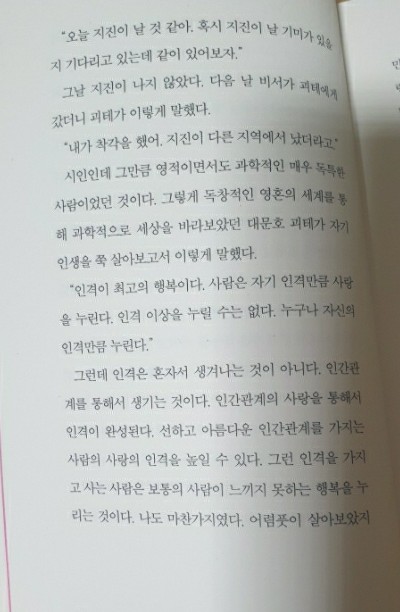 “오늘 지진이 날 것 같아. 혹시 지진이 날 기미가 있을
지 기다리고 있는데 같이 있어보자.”
그날 지진이 나지 않았다. 다음 날 비서가 괴테에게
갔더니 괴테가 이렇게 말했다.
“내가 착각을 했어. 지진이 다른 지역에서 났더라고.”
시인인데 그만큼 영적이면서도 과학적인 매우 독특한
사람이었던 것이다. 그렇게 독창적인 영혼의 세계를 통
해 과학적으로 세상을 바라보았던 대문호 괴테가 자기
인생을 쭉 살아보고서 이렇게 말했다.
“인격이 최고의 행복이다. 사람은 자기 인격만큼 사랑
을 누린다. 인격 이상을 누릴 수는 없다. 누구나 자신의
인격만큼 누린다.”
그런데 인격은 혼자서 생겨나는 것이 아니다. 인간관
계를 통해서 생기는 것이다. 인간관계의 사랑을 통해서
인격이 완성된다. 선하고 아름다운 인간관계를 가지는
사람의 사랑의 인격을 높일 수 있다. 그런 인격을 가지
고 사는 사람은 보통의 사람이 느끼지 못하는 행복을 누
리는 것이다. 나도 마찬가지였다. 어렴풋이 살아보았지